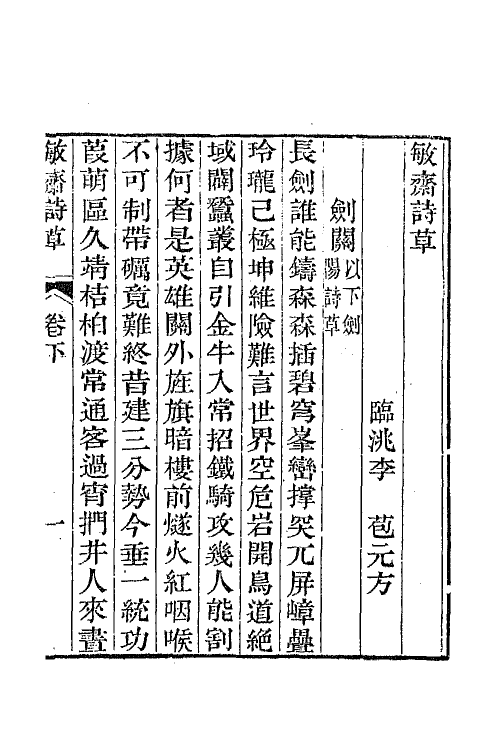 敏齋詩草
臨洮李 苞元方
劍關以下劍陽詩草
長劍誰能鑄森森插碧穹峯巒撑突兀屏嶂疊
玲瓏已極坤維險難言世界空危岩開鳥道絕
域闢蠶叢自引金牛入常招鐵騎攻幾人能割
據何者是英雄關外旌旗暗樓前燧火紅咽喉
不可制帶礪竟難終昔建三分勢今垂一統功
葭萌區久靖桔柏渡常通客過宵捫井人來晝
敏齋詩草 卷下 一